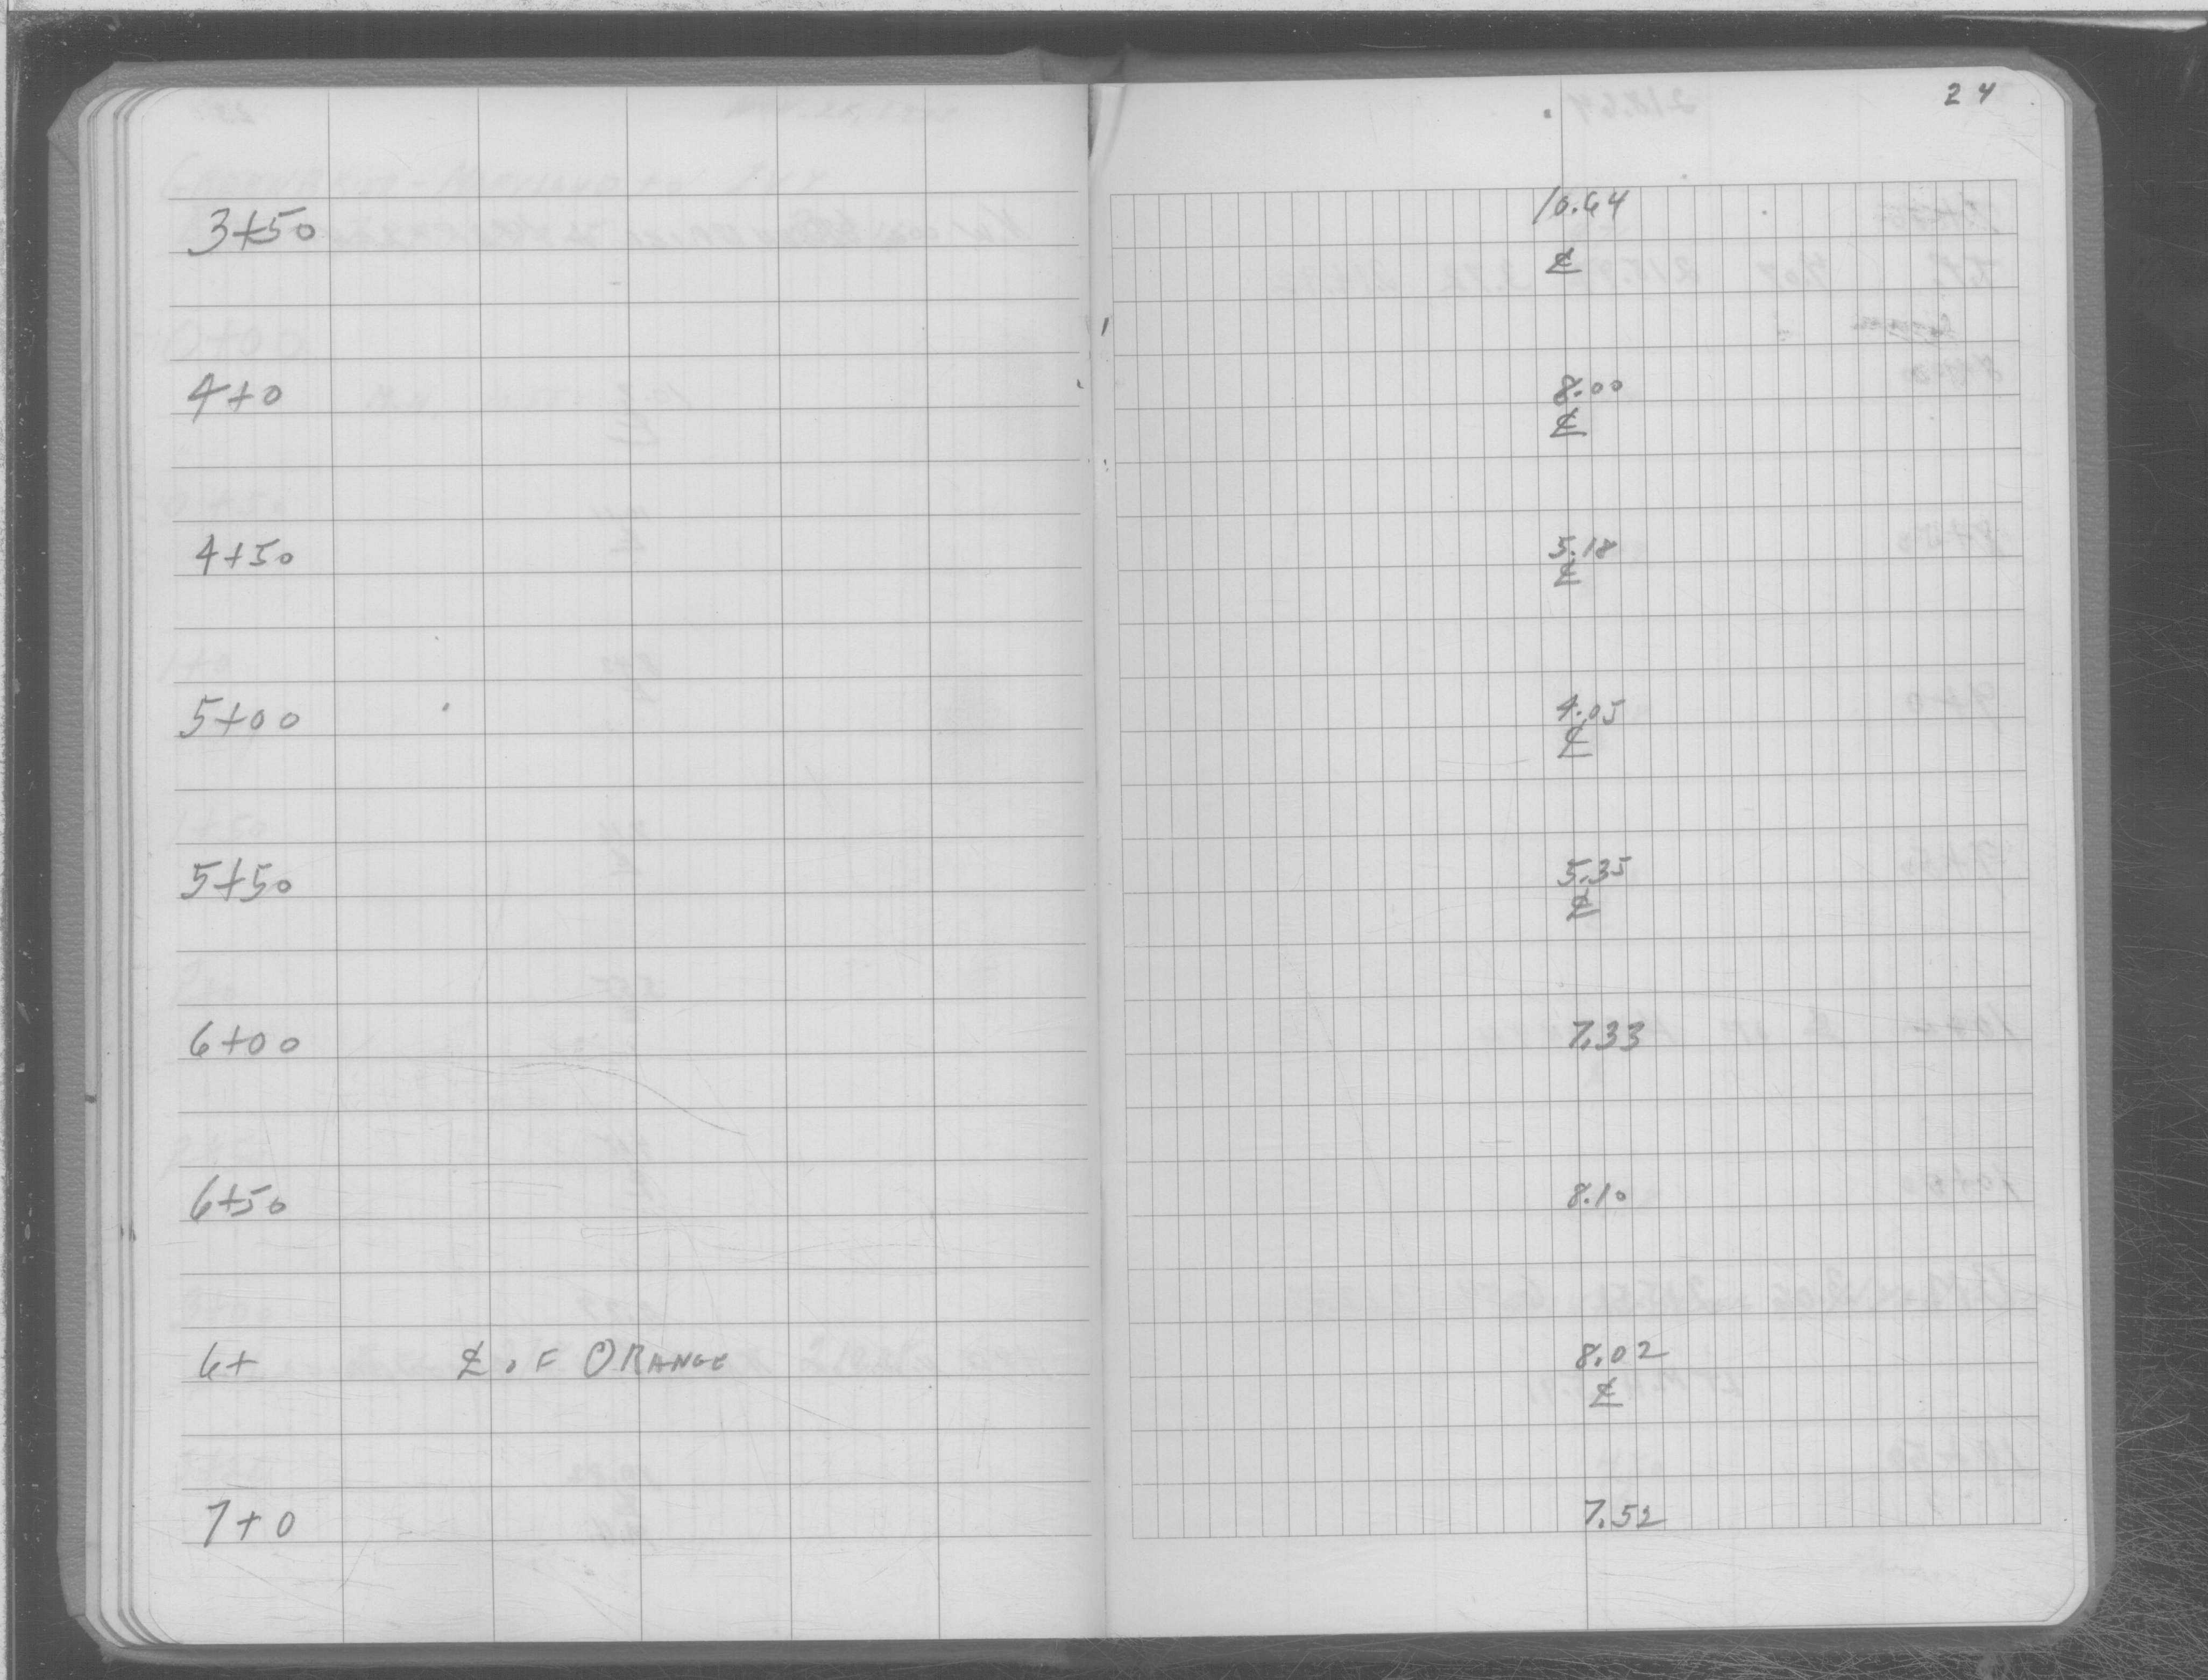 24
3+50 10.64
℄
4+0 8.00
℄
4+50 5.18
℄
5+00 4.05
℄
5+50 5.35
℄
6+00 7.33
6+50 8.10
6+ ℄ OF ORANGE 8.02
℄
7+0 7.52